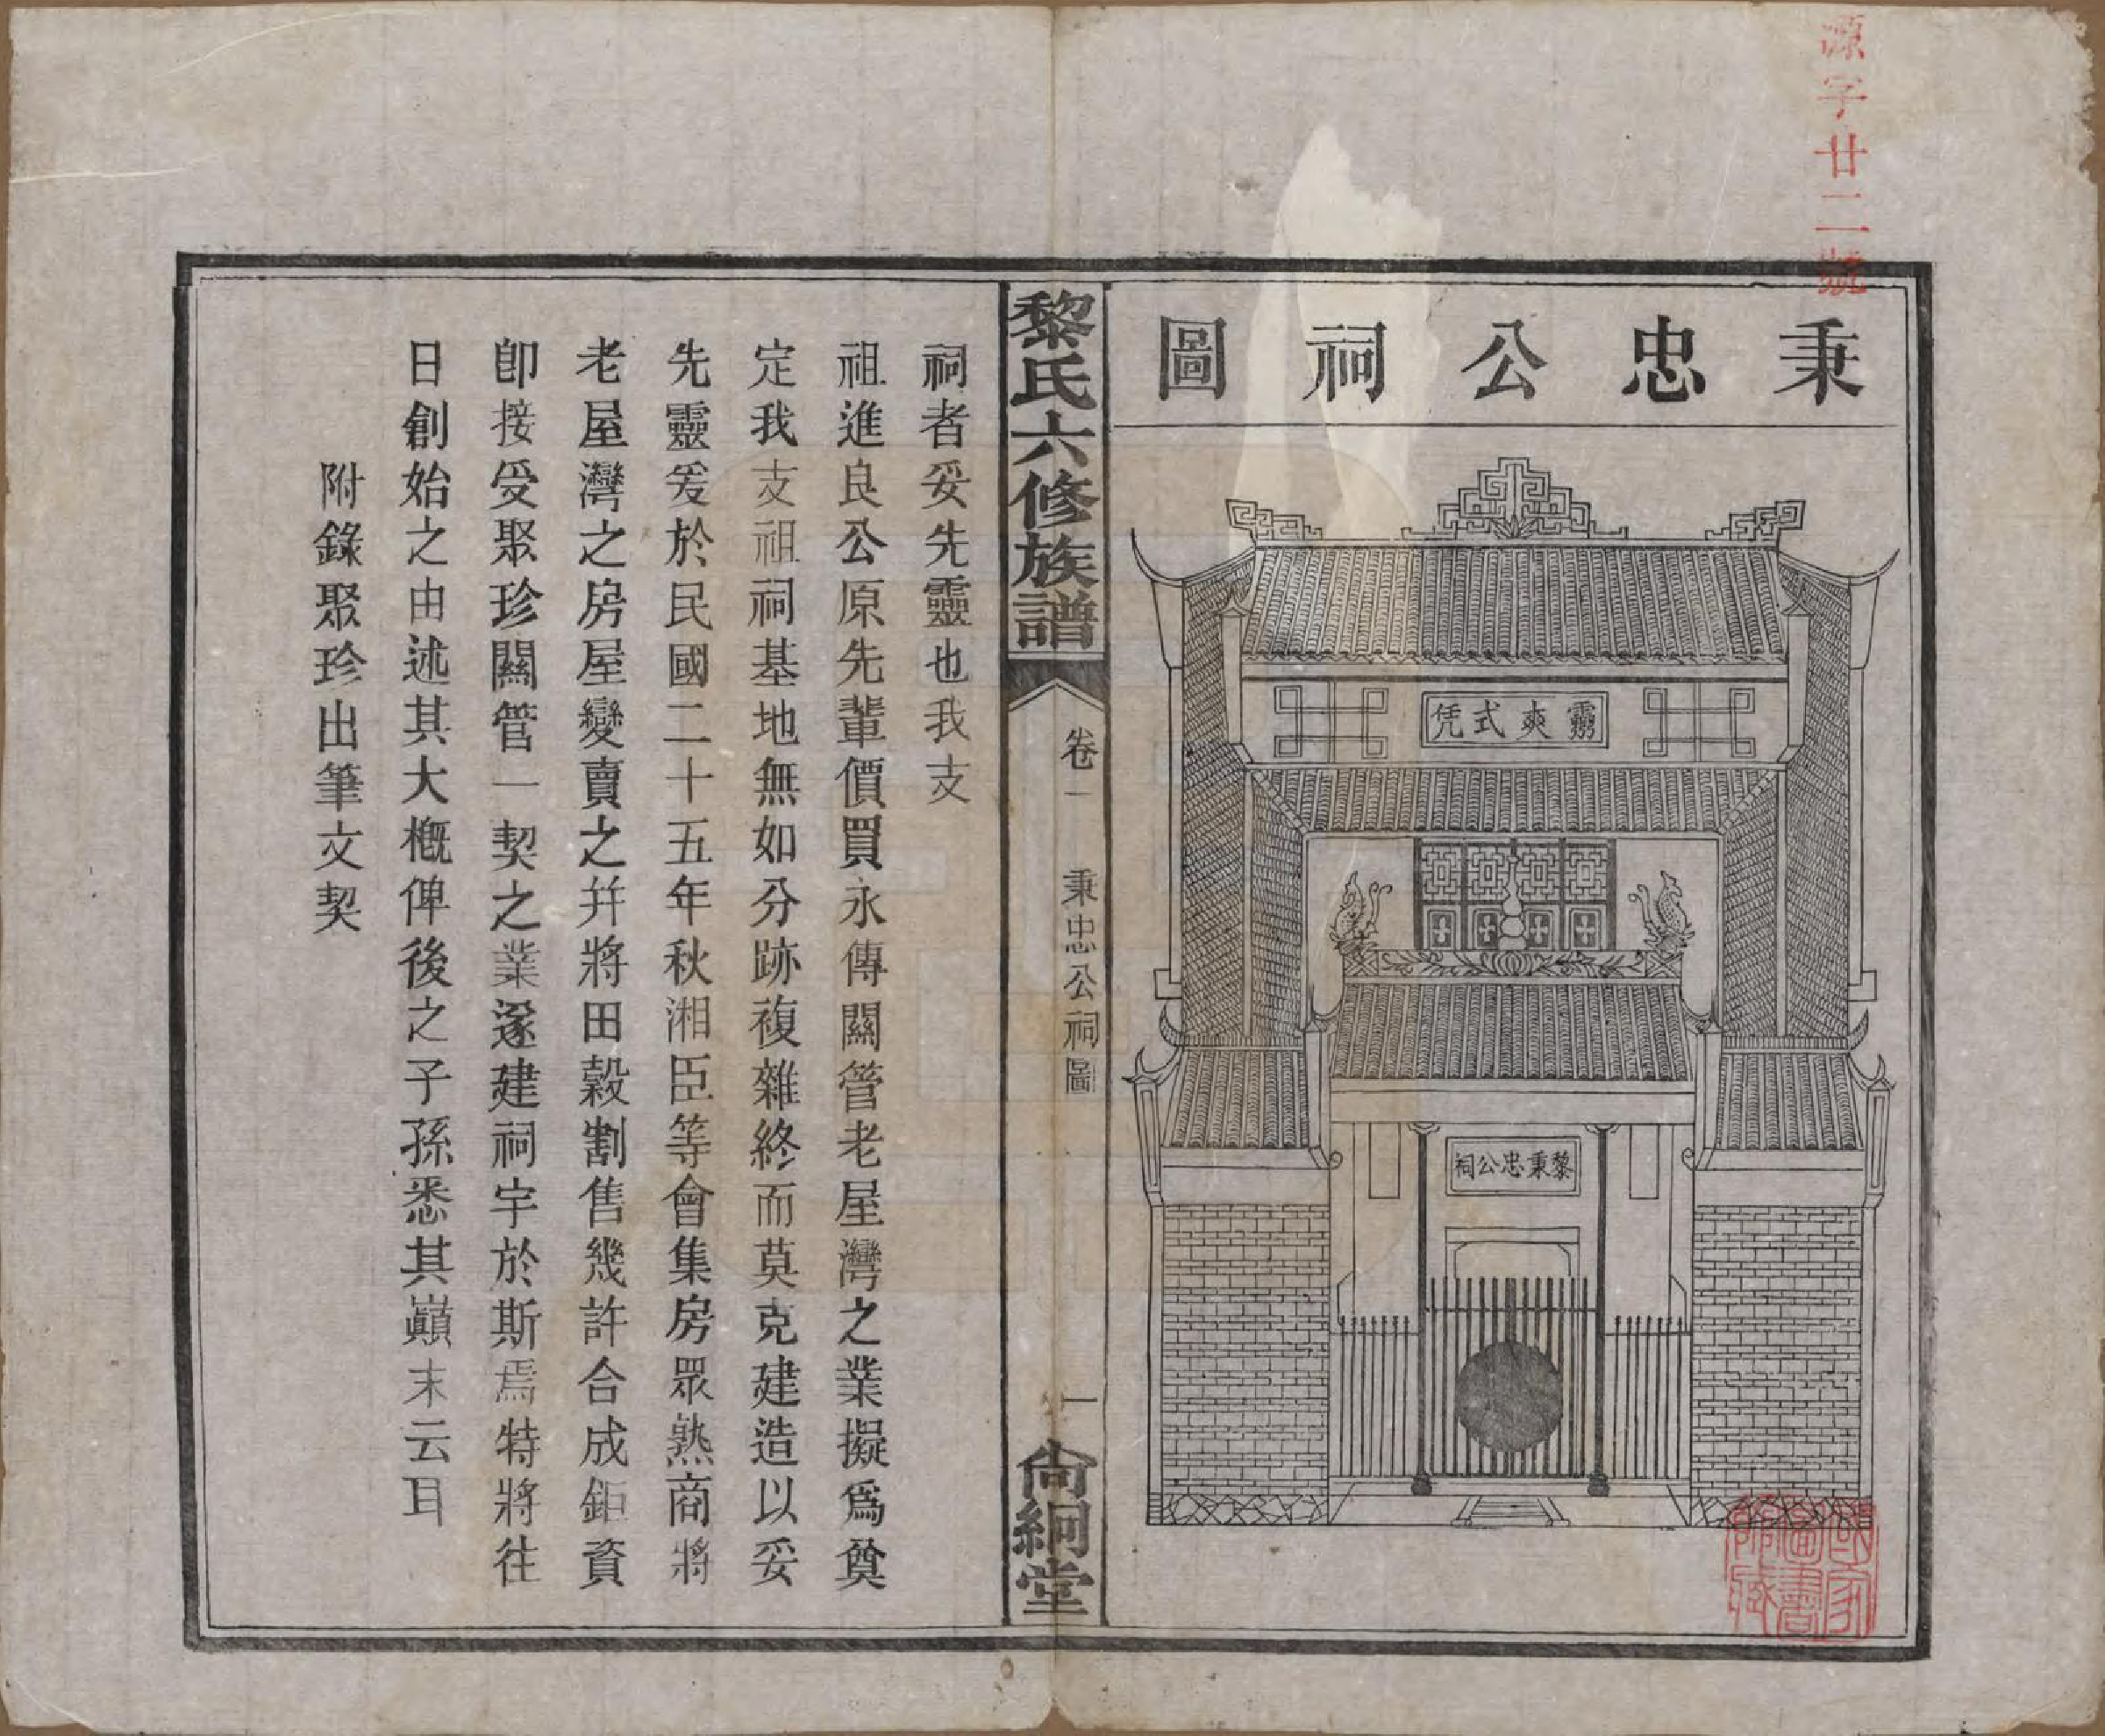 源字廿二號
秉忠公祠圖
靈爽式凭
黎秉忠公祠
國家圖書館藏
黎氏六修族譜
卷一
秉忠公祠圖
一
尙絅堂
祠者妥先靈也我支
祖進良公原先輩價買永傳關管老屋灣之業擬爲奠
定我支祖祠基地無如分跡複雜終而莫克建造以妥
先靈爰於民國二十五年秋湘臣等會集房眾熟商將
老屋灣之房屋變賣之幷將田穀割售幾許合成鉅資
卽接受聚珍關管一契之業遂建祠宇於斯焉特將往
日創始之由述其大概俾後之子孫悉其巔末云耳
附錄聚珍出筆文契